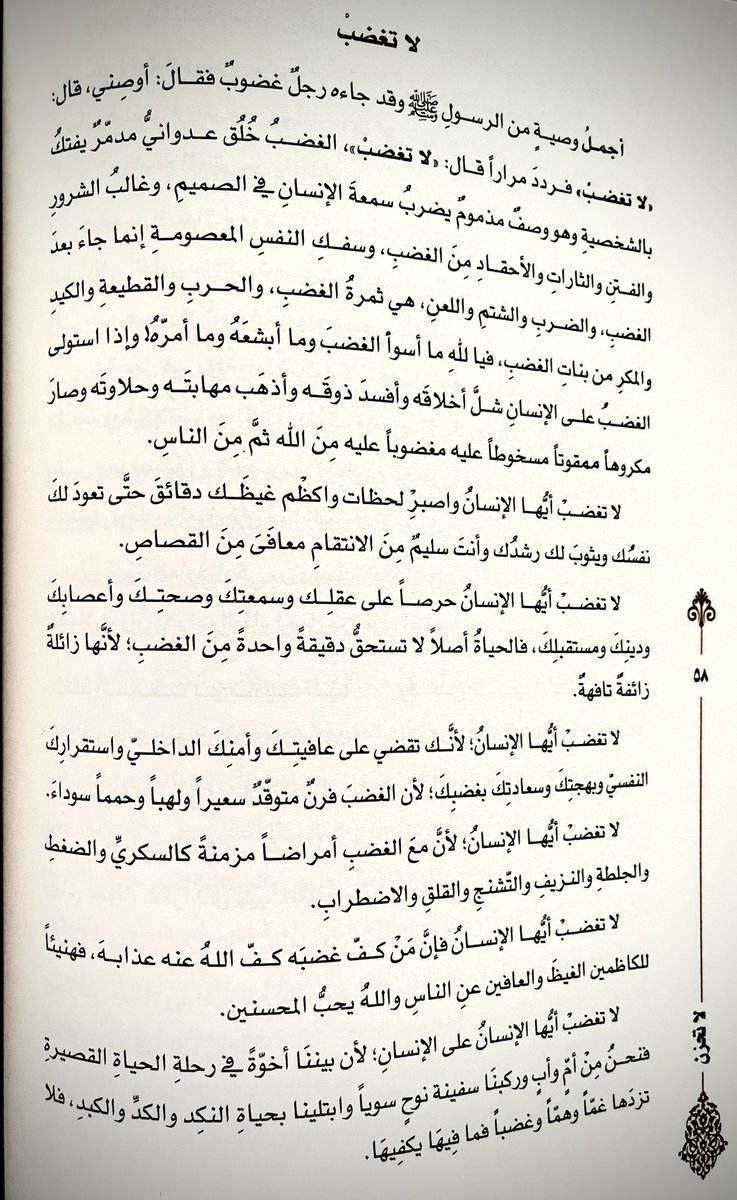 لا تغضبْ
أجملُ وصيةٍ من الرسولِ ﷺ وقد جاءه رجلٌ غضوبٌ فقالَ: أوصِني، قال:
«لا تغضبْ» فرددَ مراراً قال: «لا تغضبْ»، الغضبُ خُلُق عدوانيٌّ مدمّرٌ يفتكُ
بالشخصيةِ وهو وصفٌ مذمومٌ يضربُ سمعةَ الإنسانِ في الصميمِ، وغالبُ الشرورِ
والفتنِ والثاراتِ والأحقادِ مِنَ الغضبِ، وسفكِ النفسِ المعصومةِ إنما جاءَ بعدَ
الغضبِ، والضربِ والشتمِ واللعنِ، هي ثمرةُ الغضبِ، والحربِ والقطيعةِ والكيدِ
والمكرِ من بناتِ الغضبِ، فيا للهِ ما أسوأ الغضبَ وما أبشعَهُ وما أمرّه! وإذا استولى
الغضبُ على الإنسانِ شلَّ أخلاقَه وأفسدَ ذوقَه وأذهَب مهابتَه وحلاوتَه وصارَ
مكروهاً ممقوتاً مسخوطاً عليه مغضوباً عليه مِنَ الله ثمَّ مِنَ الناسِ.
لا تغضبْ أيُّها الإنسانُ واصبرْ لحظات واكظْم غيظَك دقائقَ حتَّى تعودَ لكَ
نفسُك ويثوبَ لك رشدُك وأنتَ سليمٌ مِنَ الانتقامِ معافَىَ مِنَ القصاصِ.
لا تغضبْ أيُّها الإنسانُ حرصاً على عقلِك وسمعتِكَ وصحتِكَ وأعصابِكَ
ودينِكَ ومستقبلِكَ، فالحياةُ أصلاً لا تستحقُّ دقيقةً واحدةً مِنَ الغضبِ؛ لأنَّها زائلةٌ
زائفةٌ تافهةٌ.
لا تغضبْ أيُّها الإنسانُ؛ لأنَّك تقضي على عافيتِكَ وأمنِكَ الداخليّ واستقرارِكَ
النفسيّ وبهجتِكَ وسعادتِكَ بغضبِكَ؛ لأن الغضبَ فرنٌ متوقّدٌ سعيراً ولهباً وحمماً سوداءَ.
لا تغضبْ أيُّها الإنسانُ؛ لأنَّ معَ الغضبِ أمراضاً مزمنةً كالسكريِّ والضغطِ
والجلطةِ والنزيفِ والتّشنجِ والقلقِ والاضطرابِ.
لا تغضبْ أيُّها الإنسانُ فإنَّ مَنْ كفّ غضبَه كفّ اللهُ عنه عذابه، فهنيئاً
للكاظمين الغيظَ والعافين عنِ الناسِ واللهُ يحبُّ المحسنين.
لا تغضبْ أيُّها الإنسانُ على الإنسانِ؛ لأن بيننَا أخوّةً في رحلةِ الحياةِ القصيرةِ
فنحنُ مِنْ أمٍّ وأبٍ وركبنَا سفينة نوحٍ سوياً وابتلينا بحياةِ النكِد والكدِّ والكبدِ، فلا
تزدَها غمّاً وهمّاً وغضباً فما فيهَا يكفيهَا.
٥٨
لا تحزن